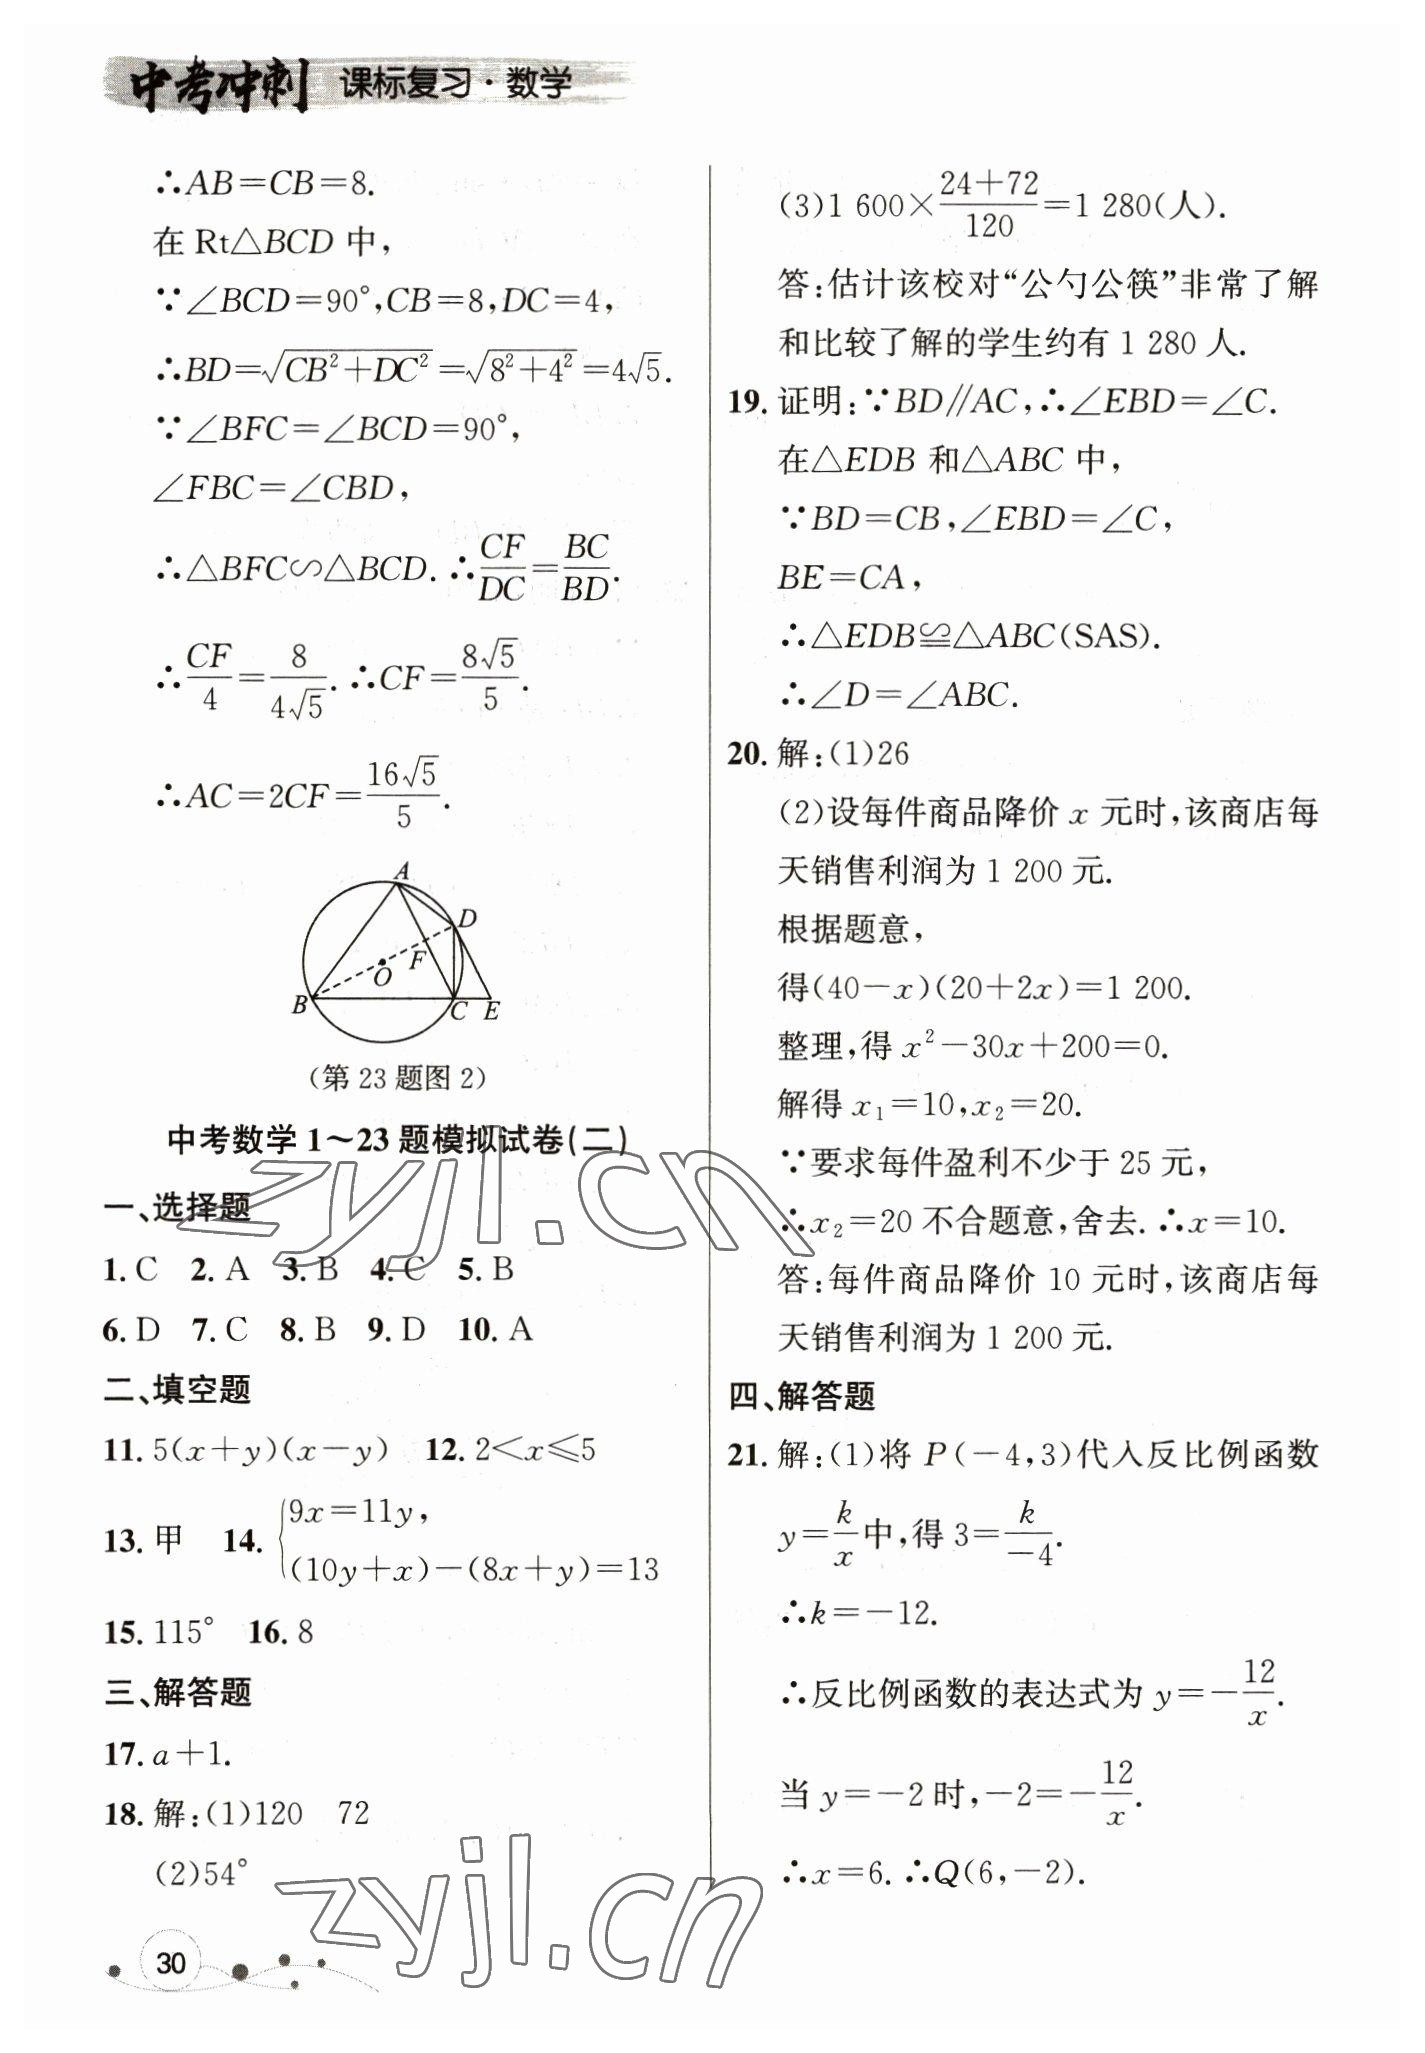 中考冲刺 课标复习·数学
∴AB=CB=8.
在 Rt△BCD 中,
∵∠BCD=90°,CB=8,DC=4,
∴BD=√(CB²+DC²)=√(8²+4²)=4√5.
∵∠BFC=∠BCD=90°,
∠FBC=∠CBD,
∴△BFC∽△BCD. ∴CF/DC=BC/BD.
∴CF/4=8/(4√5). ∴CF=8√5/5.
∴AC=2CF=16√5/5.
A
D
F
O
B
C
E
(第 23 题图 2)
中考数学 1～23 题模拟试卷(二)
一、选择题
1. C 2. A 3. B 4. C 5. B
6. D 7. C 8. B 9. D 10. A
二、填空题
11. 5(x+y)(x-y) 12. 2<x≤5
13. 甲 14. {9x=11y,
(10y+x)-(8x+y)=13
15. 115° 16. 8
三、解答题
17. a+1.
18. 解:(1)120 72
(2)54°
30
(3)1 600×(24+72)/120=1 280(人).
答:估计该校对“公勺公筷”非常了解
和比较了解的学生约有 1 280 人.
19. 证明:∵BD∥AC,∴∠EBD=∠C.
在△EDB 和△ABC 中,
∵BD=CB,∠EBD=∠C,
BE=CA,
∴△EDB≌△ABC(SAS).
∴∠D=∠ABC.
20. 解:(1)26
(2)设每件商品降价 x 元时,该商店每
天销售利润为 1 200 元.
根据题意,
得(40-x)(20+2x)=1 200.
整理,得 x²-30x+200=0.
解得 x₁=10,x₂=20.
∵要求每件盈利不少于 25 元,
∴x₂=20 不合题意,舍去. ∴x=10.
答:每件商品降价 10 元时,该商店每
天销售利润为 1 200 元.
四、解答题
21. 解:(1)将 P(-4,3)代入反比例函数
y=k/x中,得 3=k/-4.
∴k=-12.
∴反比例函数的表达式为 y=-12/x.
当 y=-2 时,-2=-12/x.
∴x=6. ∴Q(6,-2).
zyjl.cn
zyjl.cn